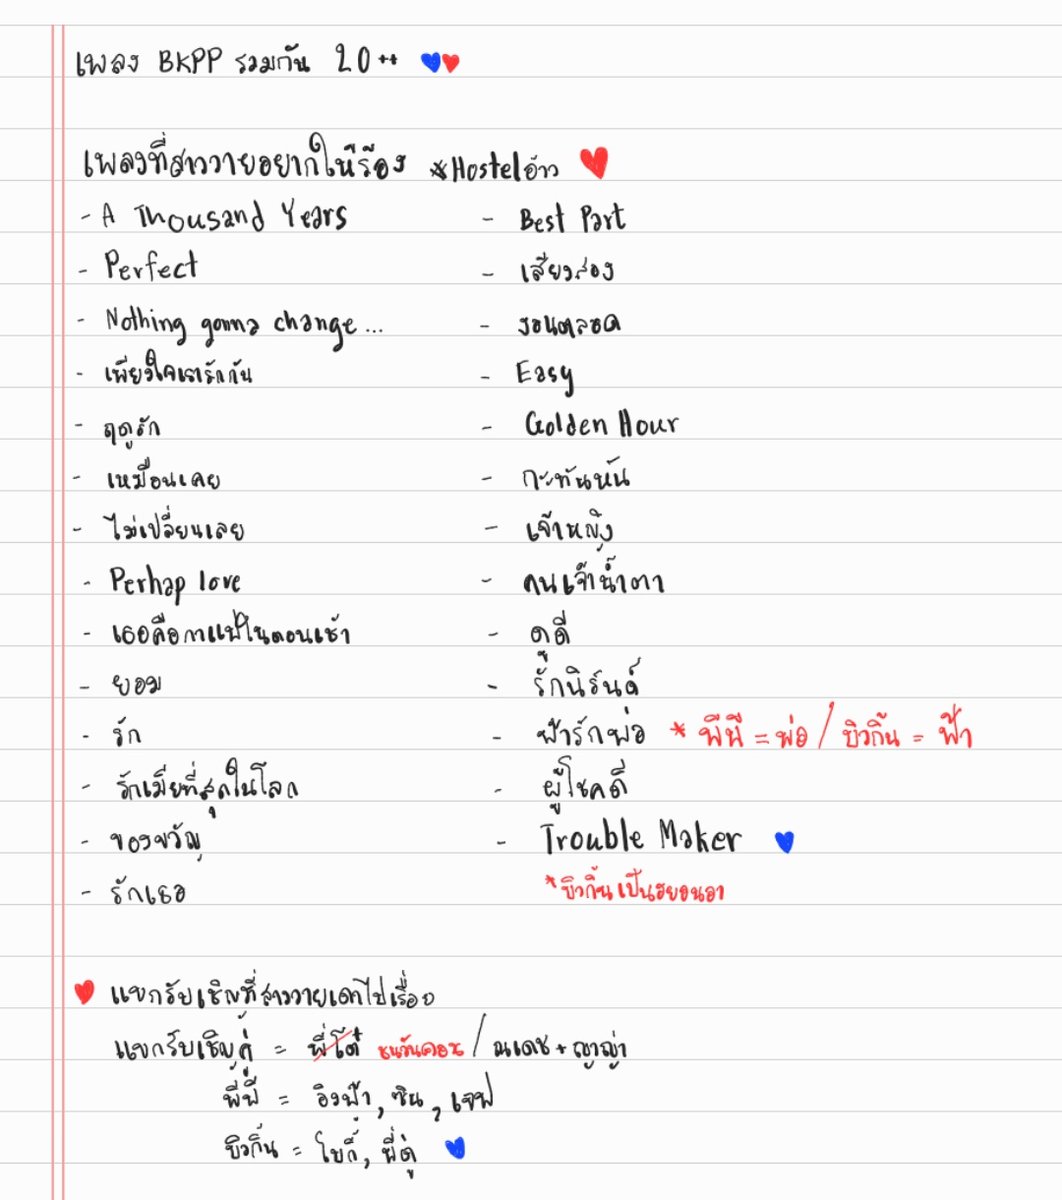 เพลง BKPP รวมกัน 20++
เพลงที่สาววายอยากให้ร้อง *Hostelอ้าว
- A Thousand Years
- Perfect
- Nothing gonna change...
- เพียงใจเรารักกัน
- ฤดูรัก
- เหมือนเคย
- ไม่เปลี่ยนเลย
- Perhap love
- เธอคือกาแฟในตอนเช้า
- ยอม
- รัก
- รักเมียที่สุดในโลก
- ของขวัญ
- รักเธอ
- Best Part
- เสี่ยวสอง
- วอนตลอด
- Easy
- Golden Hour
- กะทันหัน
- เจ้าหญิง
- คนเจ้าน้ำตา
- ดูดี
- รักนิรันด์
- ฟ้ารักพ่อ * พีพี = พ่อ / บิวกิ้น = ฟ้า
- ผู้โชคดี
- Trouble Maker
*บิวกิ้นเป็นฮยอนอา
แขกรับเชิญที่สาววายเดาไปเรื่อย
แขกรับเชิญคู่ = พี่โต๋ ชนวันคอน / ณเดช + ญาญ่า
พีพี = อิงฟ้า, ซิน, เจฟ
บิวกิ้น = โบกี้, พี่ตู่